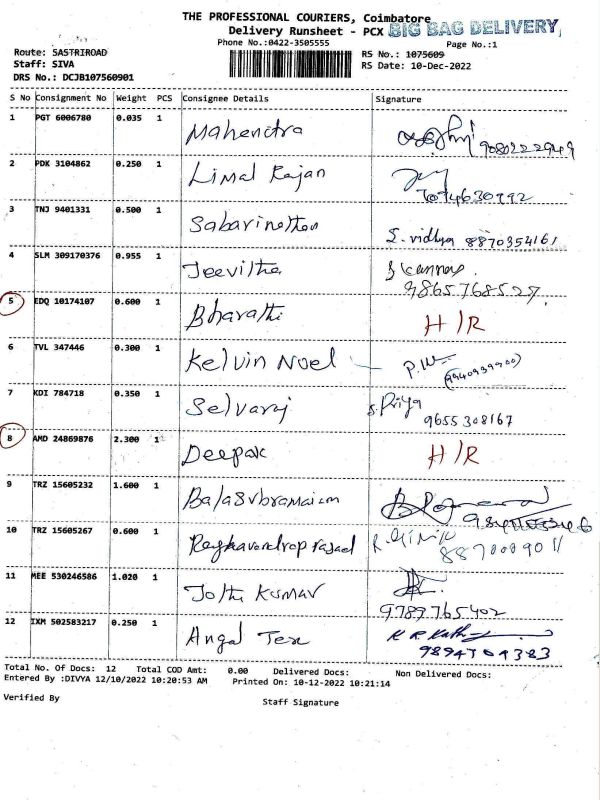 THE PROFESSIONAL COURIERS, Coimbatore
Delivery Runsheet - PCX BIG BAG DELIVERY
Phone No.:0422-3505555 Page No.:1
Route: SASTRIROAD RS No.: 1075609
Staff: SIVA RS Date: 10-Dec-2022
DRS No.: DCJB107560901
S No Consignment No Weight PCS Consignee Details Signature
1 PGT 6006780 0.035 1 Mahendra 9080222949
2 PDK 3104862 0.250 1 Limal Rajan 7074630992
3 TNJ 9401331 0.500 1 Sabarinathan S. vidhya 8870354161
4 SLM 309170376 0.955 1 Jeevitha Kannan
9865768527
5 EDQ 10174107 0.600 1 Bharathi H/R
6 TVL 347446 0.300 1 Kelvin Noel (9940939900)
7 KDI 784718 0.350 1 Selvaraj S. Priya
9655308167
8 AMD 24869876 2.300 1 Deepak H/R
9 TRZ 15605232 1.600 1 Balasubramaium
10 TRZ 15605267 0.600 1 Raghavendraprasad
8870009011
11 MEE 530246586 1.020 1 Jothi Kumar
9789765402
12 IXM 502583217 0.250 1 Angal Tex
9894304383
Total No. Of Docs: 12 Total COD Amt: 0.00 Delivered Docs: Non Delivered Docs:
Entered By :DIVYA 12/10/2022 10:20:53 AM Printed On: 10-12-2022 10:21:14
Verified By Staff Signature